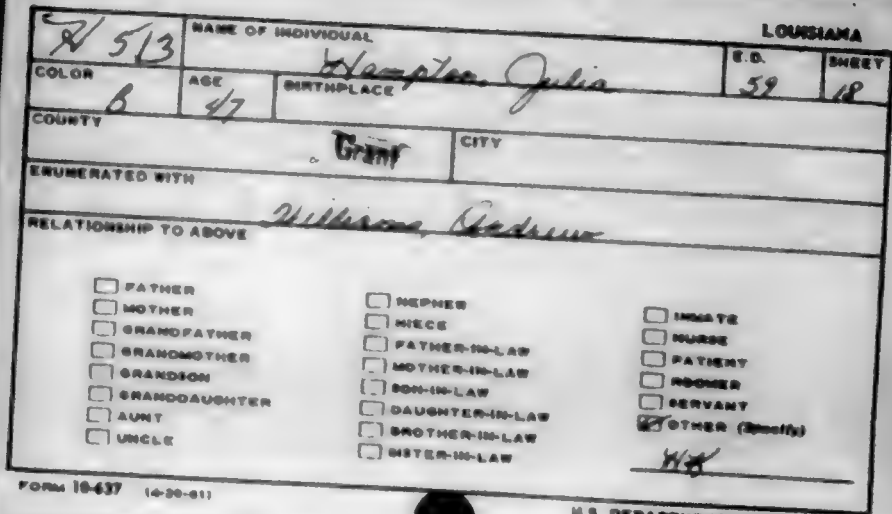 LOUISIANA
H 513 NAME OF INDIVIDUAL Hampton, Julia E.D. 59 SHEET 18
COLOR B AGE 47 BIRTHPLACE
COUNTY Grant CITY
ENUMERATED WITH Williams, Andrew
RELATIONSHIP TO ABOVE
FATHER
MOTHER
GRANDFATHER
GRANDMOTHER
GRANDSON
GRANDDAUGHTER
AUNT
UNCLE
NEPHEW
NIECE
FATHER-IN-LAW
MOTHER-IN-LAW
SON-IN-LAW
DAUGHTER-IN-LAW
BROTHER-IN-LAW
SISTER-IN-LAW
INMATE
NURSE
PATIENT
ROOMER
SERVANT
OTHER (Specify)
FORM 10-637 (4-20-61)
U.S.